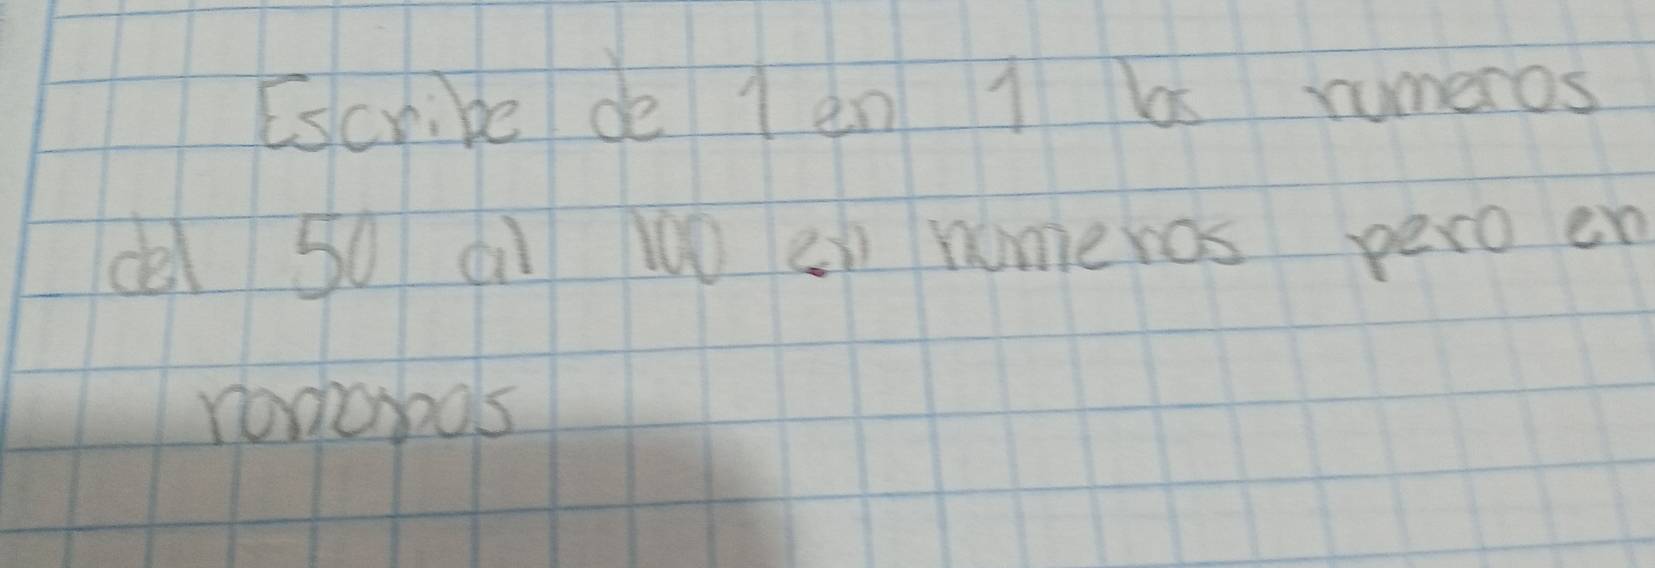 Escribe de 1 en 1 los numeros
del 50 al 100 en numeros pero en
romanos